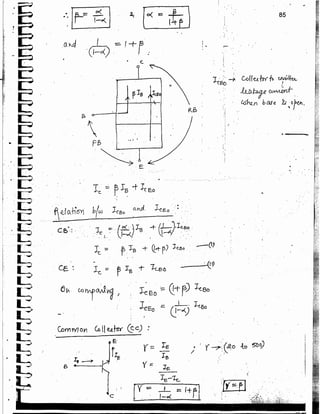 85
∴ β = α/(1-α) & α = β/(1+β)
and 1/(1-α) = 1+β
C
βI_B I_CEO
B
RB
FB
E
I_CEO → Collector to emitter
leakage current
when base is open.
I_C = βI_B + I_CEO
Relation b/w I_CBO and I_CEO :
CB: I_C = (α/(1-α)) I_B + (1/(1-α)) I_CBO
I_C = β I_B + (1+β) I_CBO —(1)
CE : I_C = β I_B + I_CEO —(2)
On comparing, I_CEO = (1+β) I_CBO
I_CEO = (1/(1-α)) I_CBO
Common Collector (CC) :
E
I_E
B I_B
C
γ = I_E/I_B ; γ → (20 to 500)
γ = I_E/(I_E-I_C)
γ = 1/(1-α) = 1+β
γ ≅ β